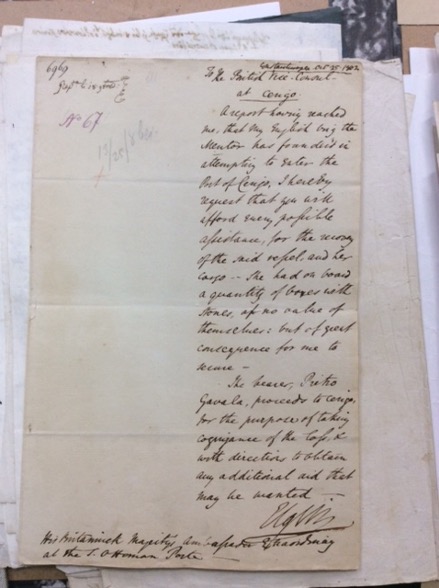 6969
No 67
Oct 25 1802
To the British Vice Consul
at Cerigo
A report having reached
me, that my English brig the
Mentor has foundered in
attempting to enter the
Port of Cerigo, I hereby
request that you will
afford every possible
assistance, for the recovery
of the said vessel, and her
cargo -- She had on board
a quantity of boxes with
stones, of no value of
themselves: but of great
consequence for me to
secure -
The bearer, Pietro
Gavala, proceeds to Cerigo,
for the purpose of taking
cognizance of the loss, &
with directions to obtain
any additional aid that
may be wanted -
Elgin
His Britannick Majesty's Ambassador Extraordinary
at the S. Ottoman Porte